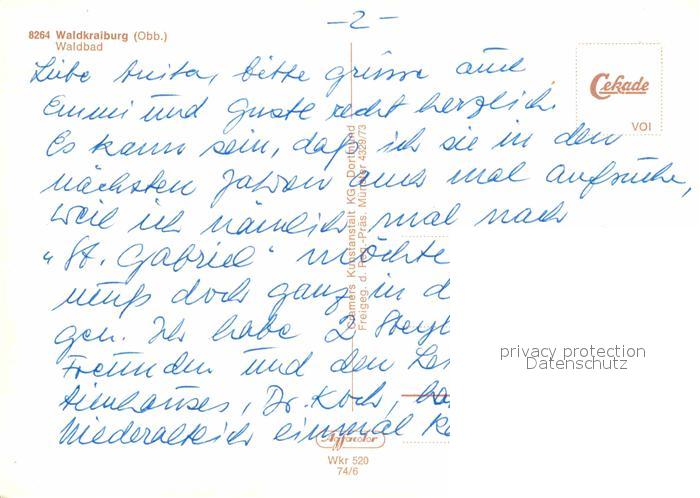 -2-
8264 Waldkraiburg (Obb.)
Waldbad
Liebe Anita, bitte grüsse auch
Emmi und Guste recht herzlich.
Es kann sein, daß ich sie in den
nächsten Jahren auch mal aufsuche,
weil ich nämlich mal nach
"St. Gabriel" möchte
muß doch ganz in d
gen. Ich habe 2
Freunden und den
Dr. Koch,
Niederalteich einmal
Cekade
VOI
Cramers Kunstanstalt KG, Dortmund
Freigeg. d. Reg.-Präs. Münster 4329/73
privacy protection
Datenschutz
Agfacolor
Wkr 520
74/6